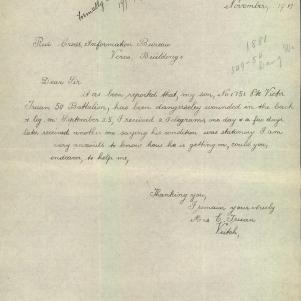 formally
November, 1917
1881
Red Cross Information Bureau
Verco, Buildings
Dear Sir
It has been reported that my son, No 1751 Pte Victor
Truan 50 Battalion, has been dangerously wounded in the back
& leg. on September 25, I received 2 Telegrams one day & a few days
later received another one saying his condition was stationary I am
very anxious to know how he is getting on, could you,
endeavor, to help me,
Thanking you,
I remain, yours truly
Mrs E. Truan
Veitch,